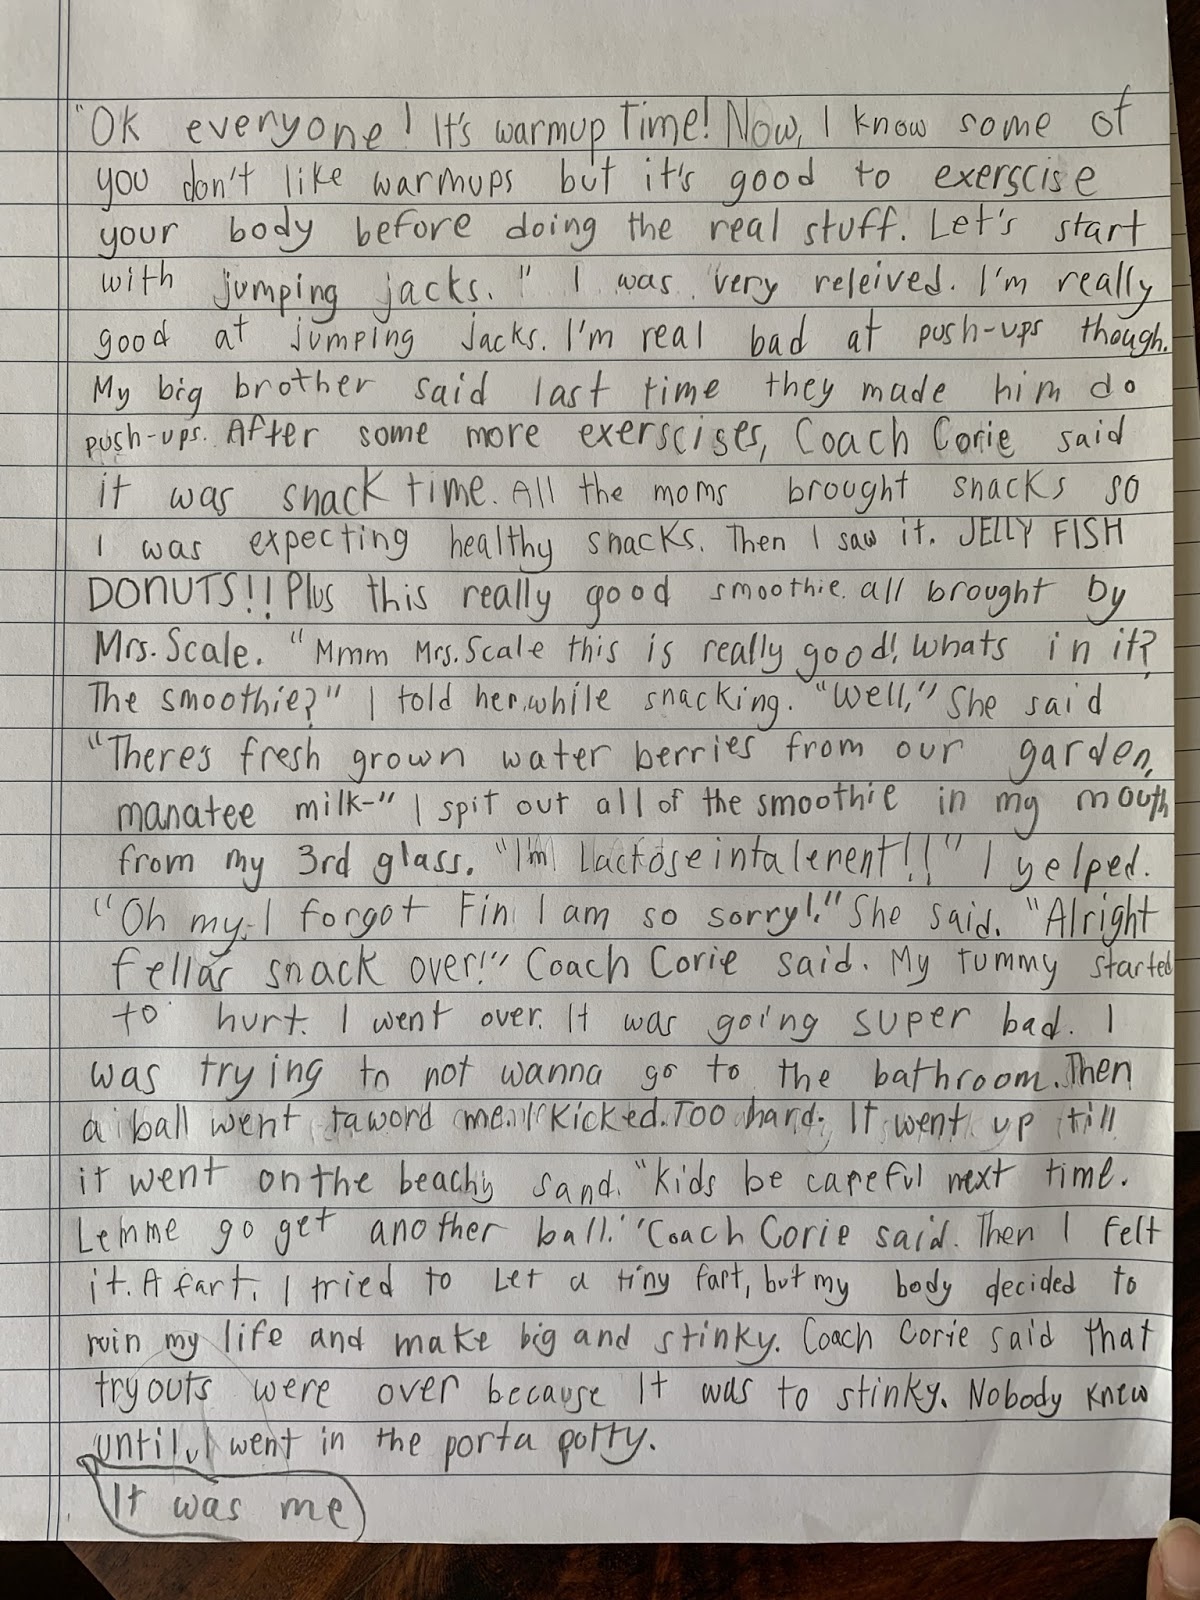 "Ok everyone! It's warmup Time! Now, I know some of
you don't like warmups but it's good to exerscise
your body before doing the real stuff. Let's start
with jumping jacks." I was very releived. I'm really
good at jumping jacks. I'm real bad at push-ups though.
My big brother said last time they made him do
push-ups. After some more exerscises, Coach Corie said
it was snack time. All the moms brought snacks so
I was expecting healthy snacks. Then I saw it. JELLY FISH
DONUTS!! Plus this really good smoothie. all brought by
Mrs. Scale. "Mmm Mrs. Scale this is really good! Whats in it?
The smoothie?" I told her, while snacking. "Well," She said
"Theres fresh grown water berries from our garden,
manatee milk-" I spit out all of the smoothie in my mouth
from my 3rd glass. "I'm Lactose intalerent!!" I yelped.
"Oh my, I forgot Fin I am so sorry!." She said. "Alright
fellas snack over!" Coach Corie said. My tummy started
to hurt. I went over. It was going super bad. I
was trying to not wanna go to the bathroom. Then
a ball went taword me. I kicked. Too hard. It went up till
it went on the beachy sand. "Kids be careful next time.
Lemme go get another ball." Coach Corie said. Then I felt
it. A fart. I tried to Let a tiny fart, but my body decided to
ruin my life and make big and stinky. Coach Corie said that
tryouts were over because It was to stinky. Nobody knew
until I went in the porta potty.
It was me